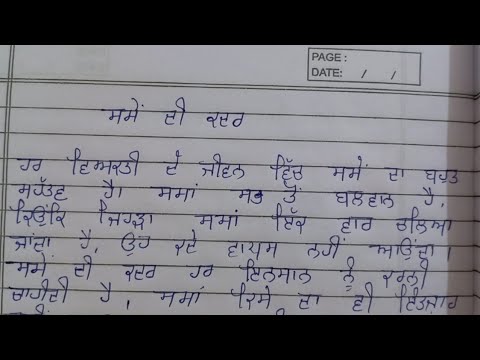 PAGE:
DATE: / /
ਸਮੇਂ ਦੀ ਕਦਰ
ਹਰ ਵਿਅਕਤੀ ਦੇ ਜੀਵਨ ਵਿੱਚ ਸਮੇਂ ਦਾ ਬਹੁਤ
ਮਹੱਤਵ ਹੈ। ਸਮਾਂ ਸਭ ਤੋਂ ਬਲਵਾਨ ਹੈ,
ਕਿਉਂਕਿ ਜਿਹੜਾ ਸਮਾਂ ਇੱਕ ਵਾਰ ਚਲਿਆ
ਜਾਂਦਾ ਹੈ, ਉਹ ਕਦੇ ਵਾਪਸ ਨਹੀਂ ਆਉਂਦਾ।
ਸਮੇਂ ਦੀ ਕਦਰ ਹਰ ਇਨਸਾਨ ਨੂੰ ਕਰਨੀ
ਚਾਹੀਦੀ ਹੈ, ਸਮਾਂ ਕਿਸੇ ਦਾ ਵੀ ਇੰਤਜ਼ਾਰ